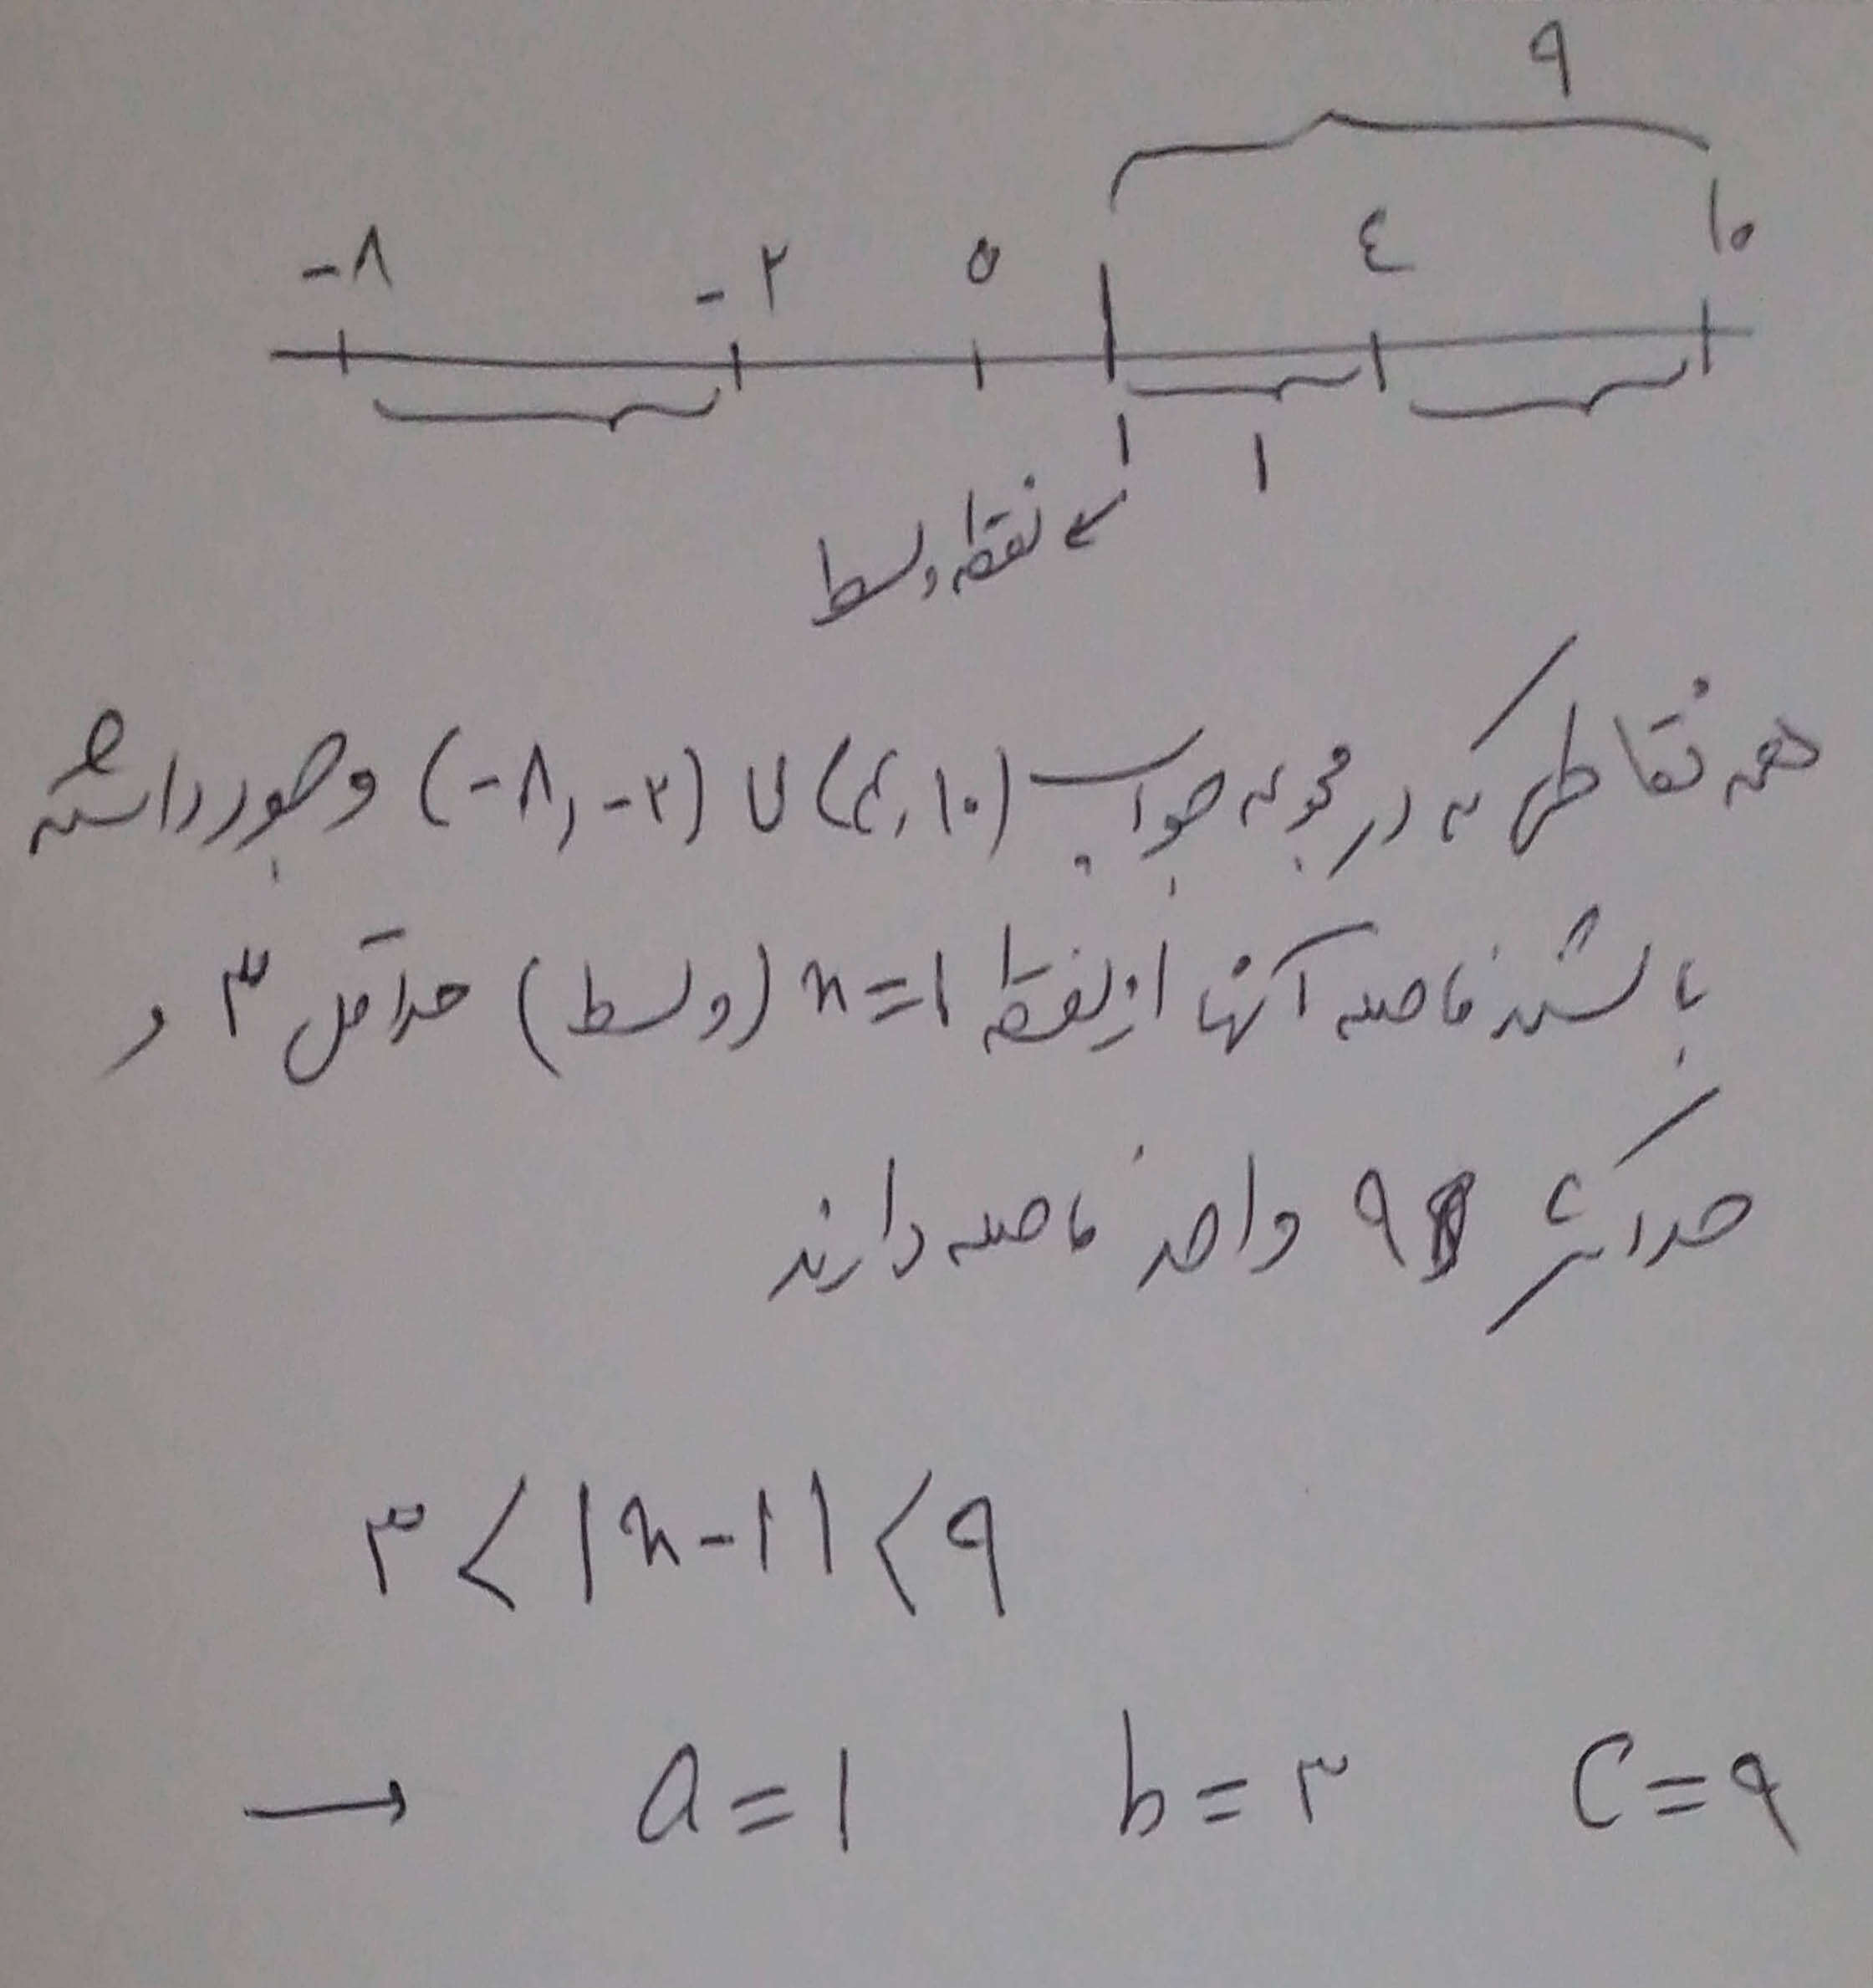 ۹
-۸ -۲ ۰ ٤ ۱۰
۱ ۱
نقطه وسط
همه نقاطی که در مجموعه جواب (-۸, -۲) ∪ (٤, ۱۰) وجود داشته
باشند فاصله آنها از نقطه x=۱ (وسط) حداقل ۳ و
حداکثر ۹ واحد فاصله دارند
۳ < |x-۱| < ۹
→ a=۱ b=۳ c=۹